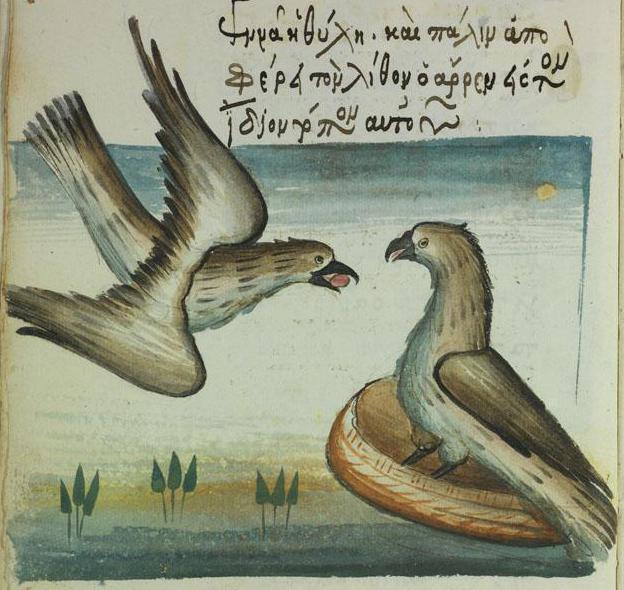 ἡ θύλη. καὶ πάλιν ἀπο
φέρει τὸν λίθον ὁ ἄρρεν εἰς τὸν
ἴδιον τόπον αὐτοῦ :